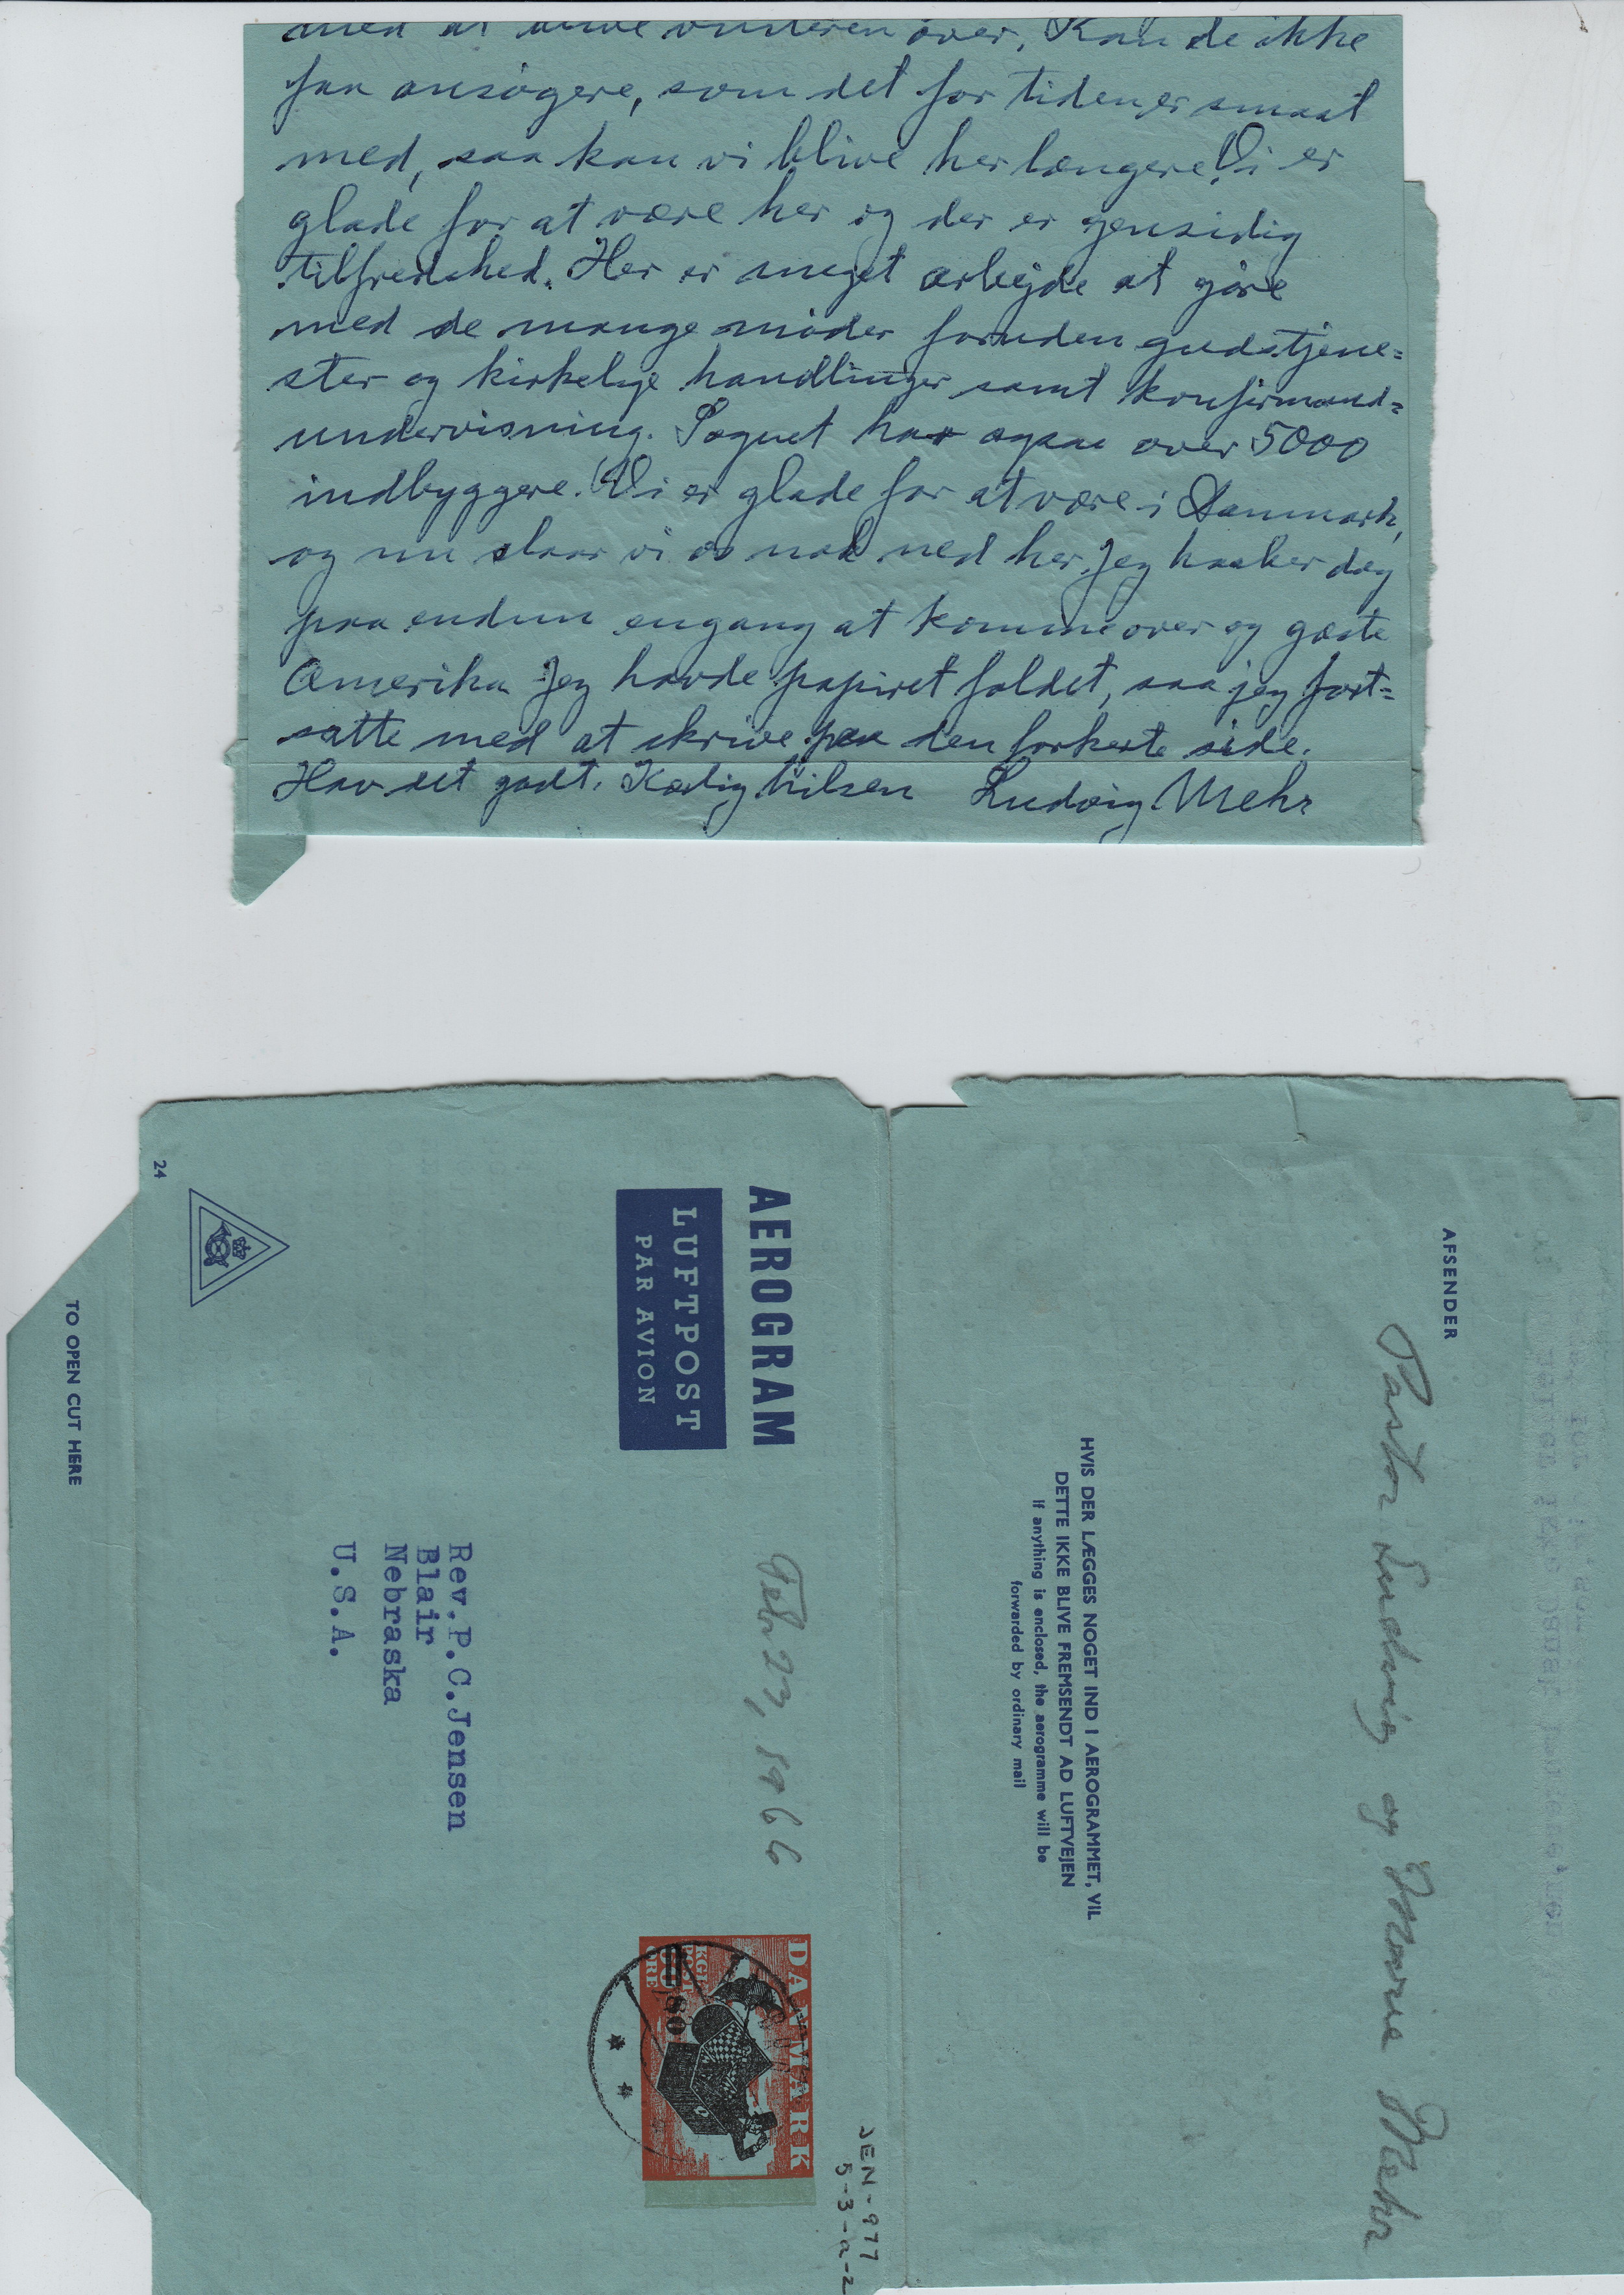 med at blive vinteren over. Kan de ikke
faa ansøgere, som det for tiden er smaat
med, saa kan vi blive her længere. Vi er
glade for at være her og der er gensidig
tilfredshed. Her er meget arbejde at gøre
med de mange møder foruden gudstjene=
ster og kirkelige handlinger samt konfirmand=
undervisning. Sognet har ogsaa over 5000
indbyggere. Vi er glade for at være i Danmark,
og nu slaar vi os nok ned her. Jeg haaber dog
paa endnu engang at komme over og gæste
Amerika. Jeg havde papiret foldet, saa jeg fort=
satte med at skrive paa den forkerte side.
Hav det godt. Kærlig hilsen Ludvig Mehr
AFSENDER
Pastor Ludvig og Marie Mehr
HVIS DER LÆGGES NOGET IND I AEROGRAMMET, VIL
DETTE IKKE BLIVE FREMSENDT AD LUFTVEJEN
If anything is enclosed, the aerogramme will be
forwarded by ordinary mail
JEN-977
5-3-a-2
AEROGRAM
LUFTPOST
PAR AVION
Feb 23, 1966
DANMARK
KGL
POST
ØRE
80
Rev.P.C.Jensen
Blair
Nebraska
U.S.A.
24
TO OPEN CUT HERE